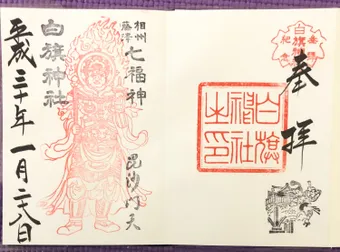 奉拝
白旗
神社
之印
相州
藤澤
七福神
毘沙門天
白旗神社
平成三十年一月二八日